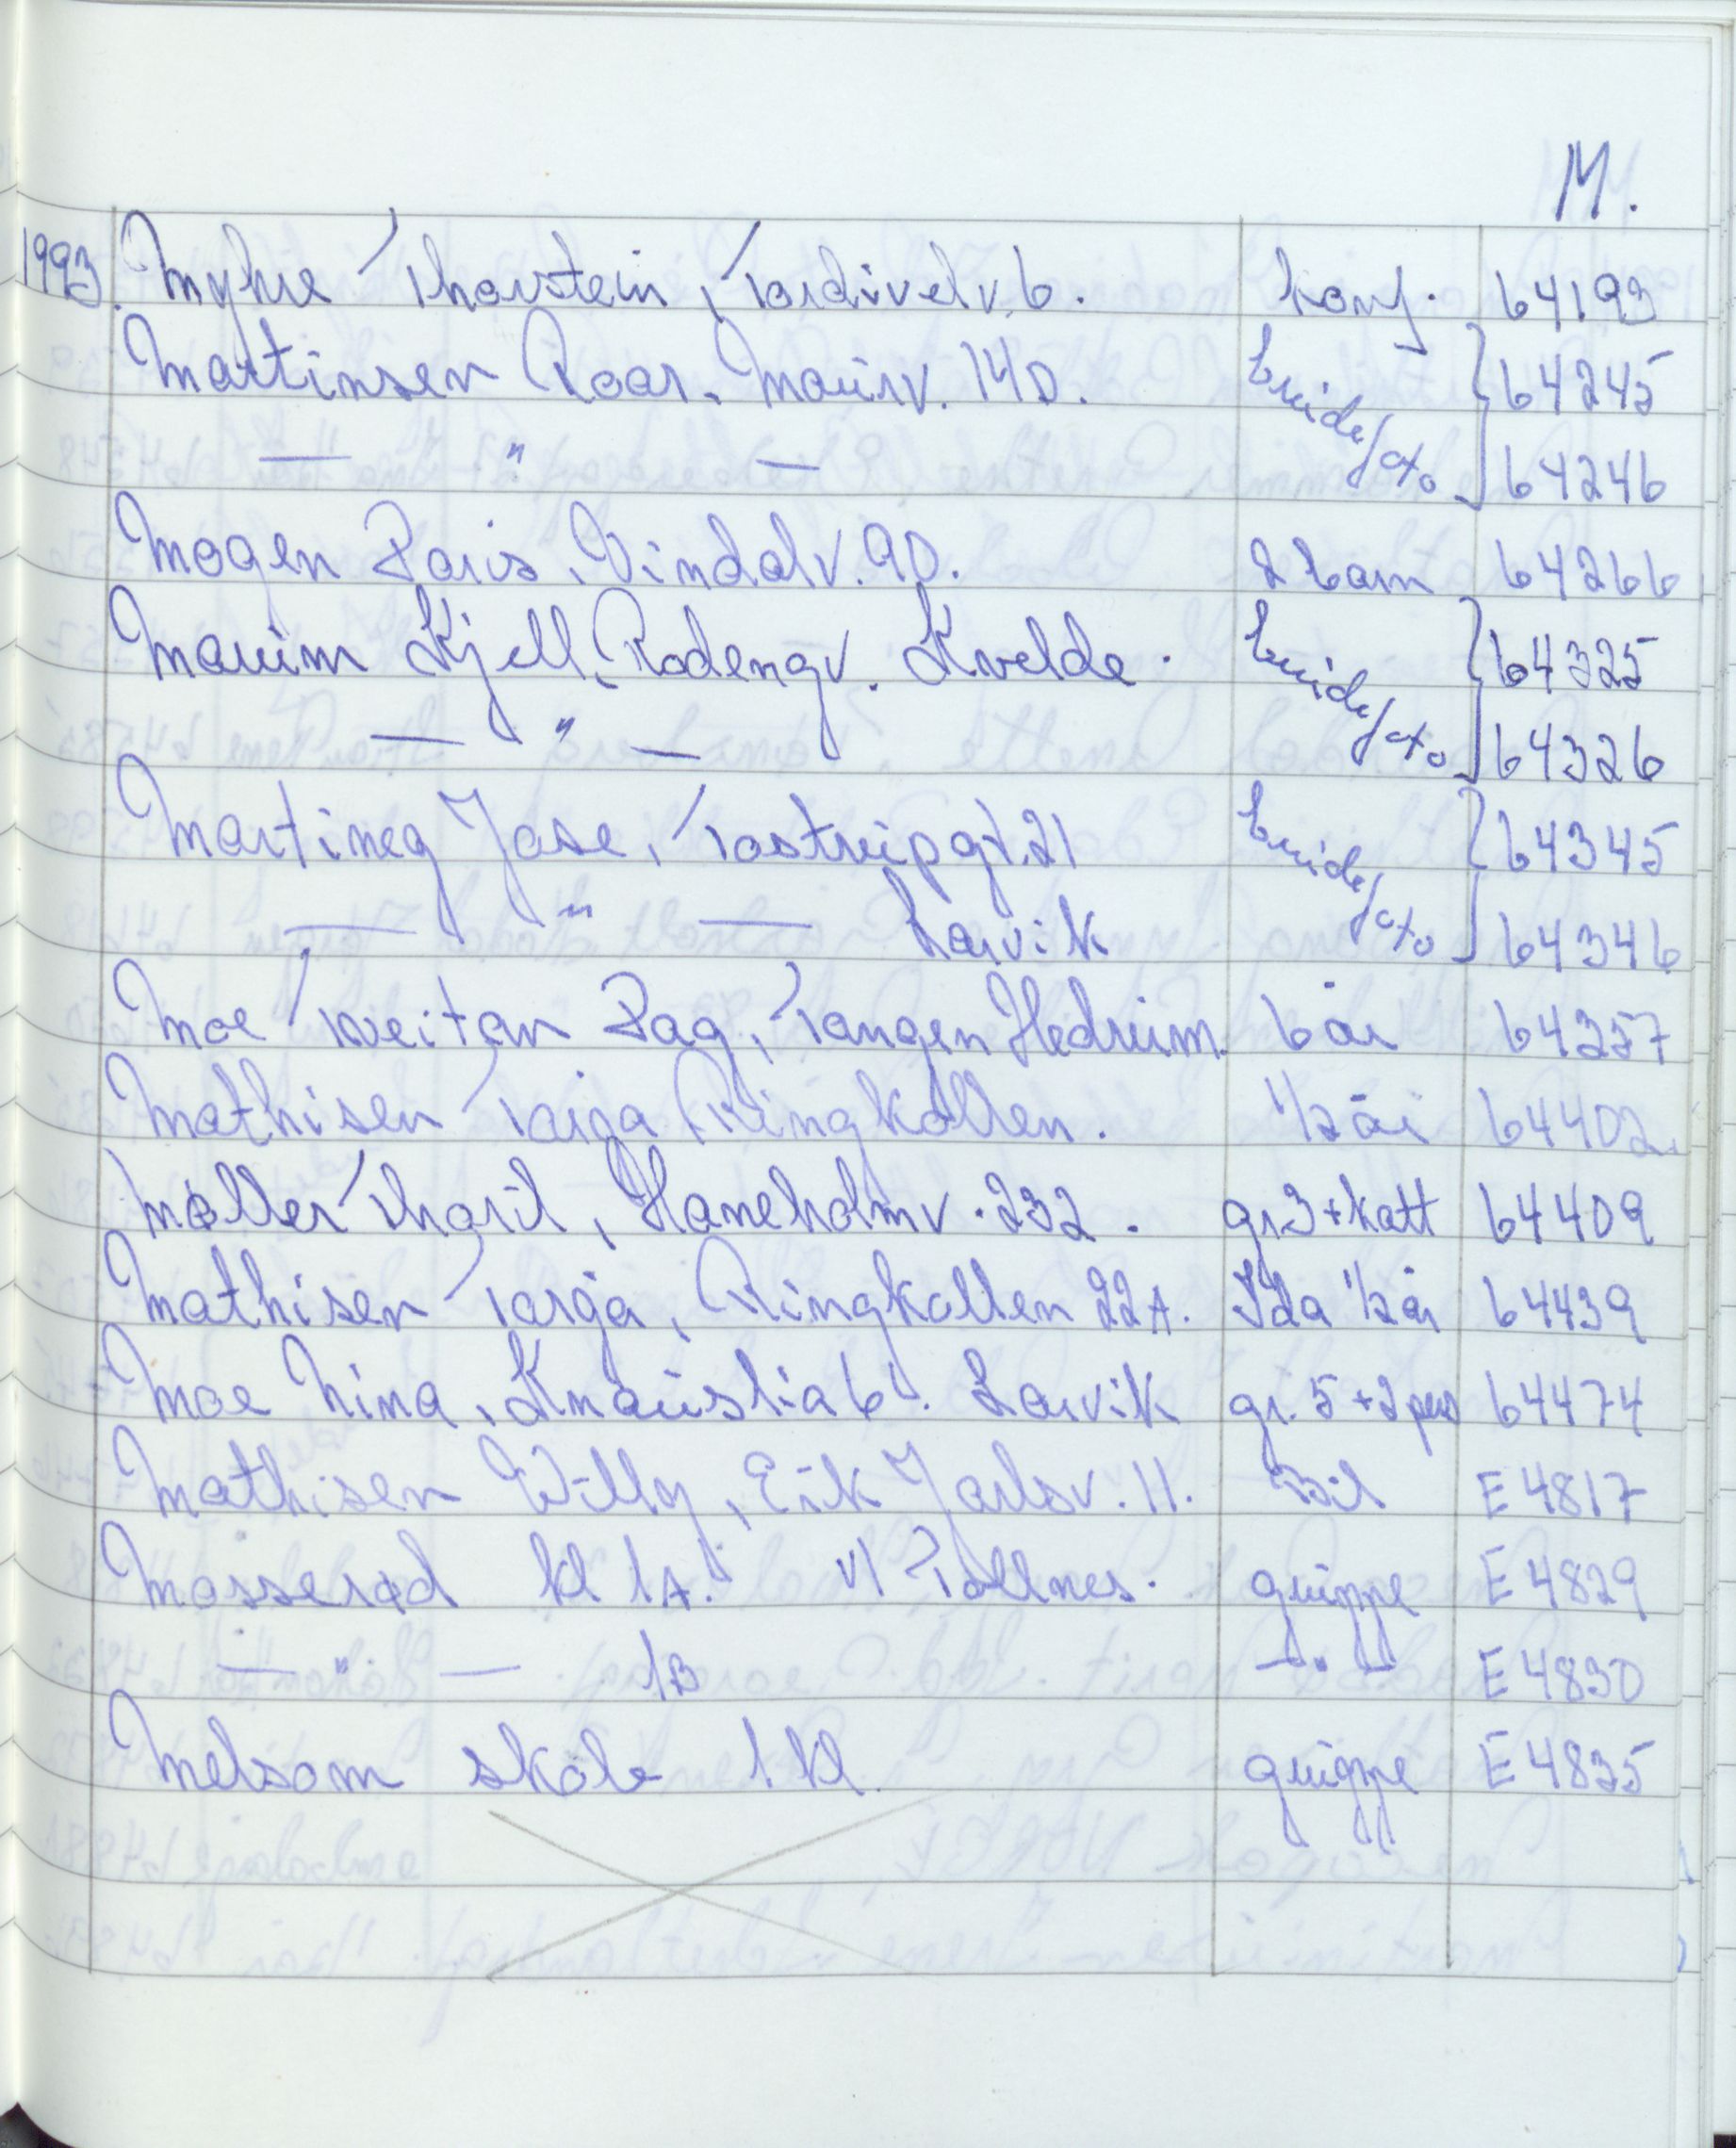 M.
1993. Myhre Thorstein, Tordivelv. 6. konf. 64193
Martinsen Roar, Maurv. 14D. brude/oto 64245
— " — 64246
Mogen Doris, Vindalv. 9D. 2 barn 64266
Mauim Kjell, Rodengv. Kvelde. brude/oto 64325
— " — 64326
Martineg Jose, Tostrupgt. 21 brude/oto 64345
— " — Larvik 64346
Moe Tveitan Dag, Tangen Hedrum. 6 år 64357
Mathisen Tarja Ringkollen. 1/2 år 64402.
Møller Thoril, Haneholmv. 232. gr. 3 + katt 64409
Mathisen Tarja, Ringkollen 22A. Ida 1/2 år 64439
Moe Nina, Knauslia 6. Larvik gr. 5 + 2 pers 64474
Mathisen Willy, Eirik Jarlsv. 11. Bil E 4817
Mosserød kl 1A. v/ Tollnes. gruppe E 4829
— " — 1B — " — E 4830
Melsom skole 1. kl. gruppe E 4835